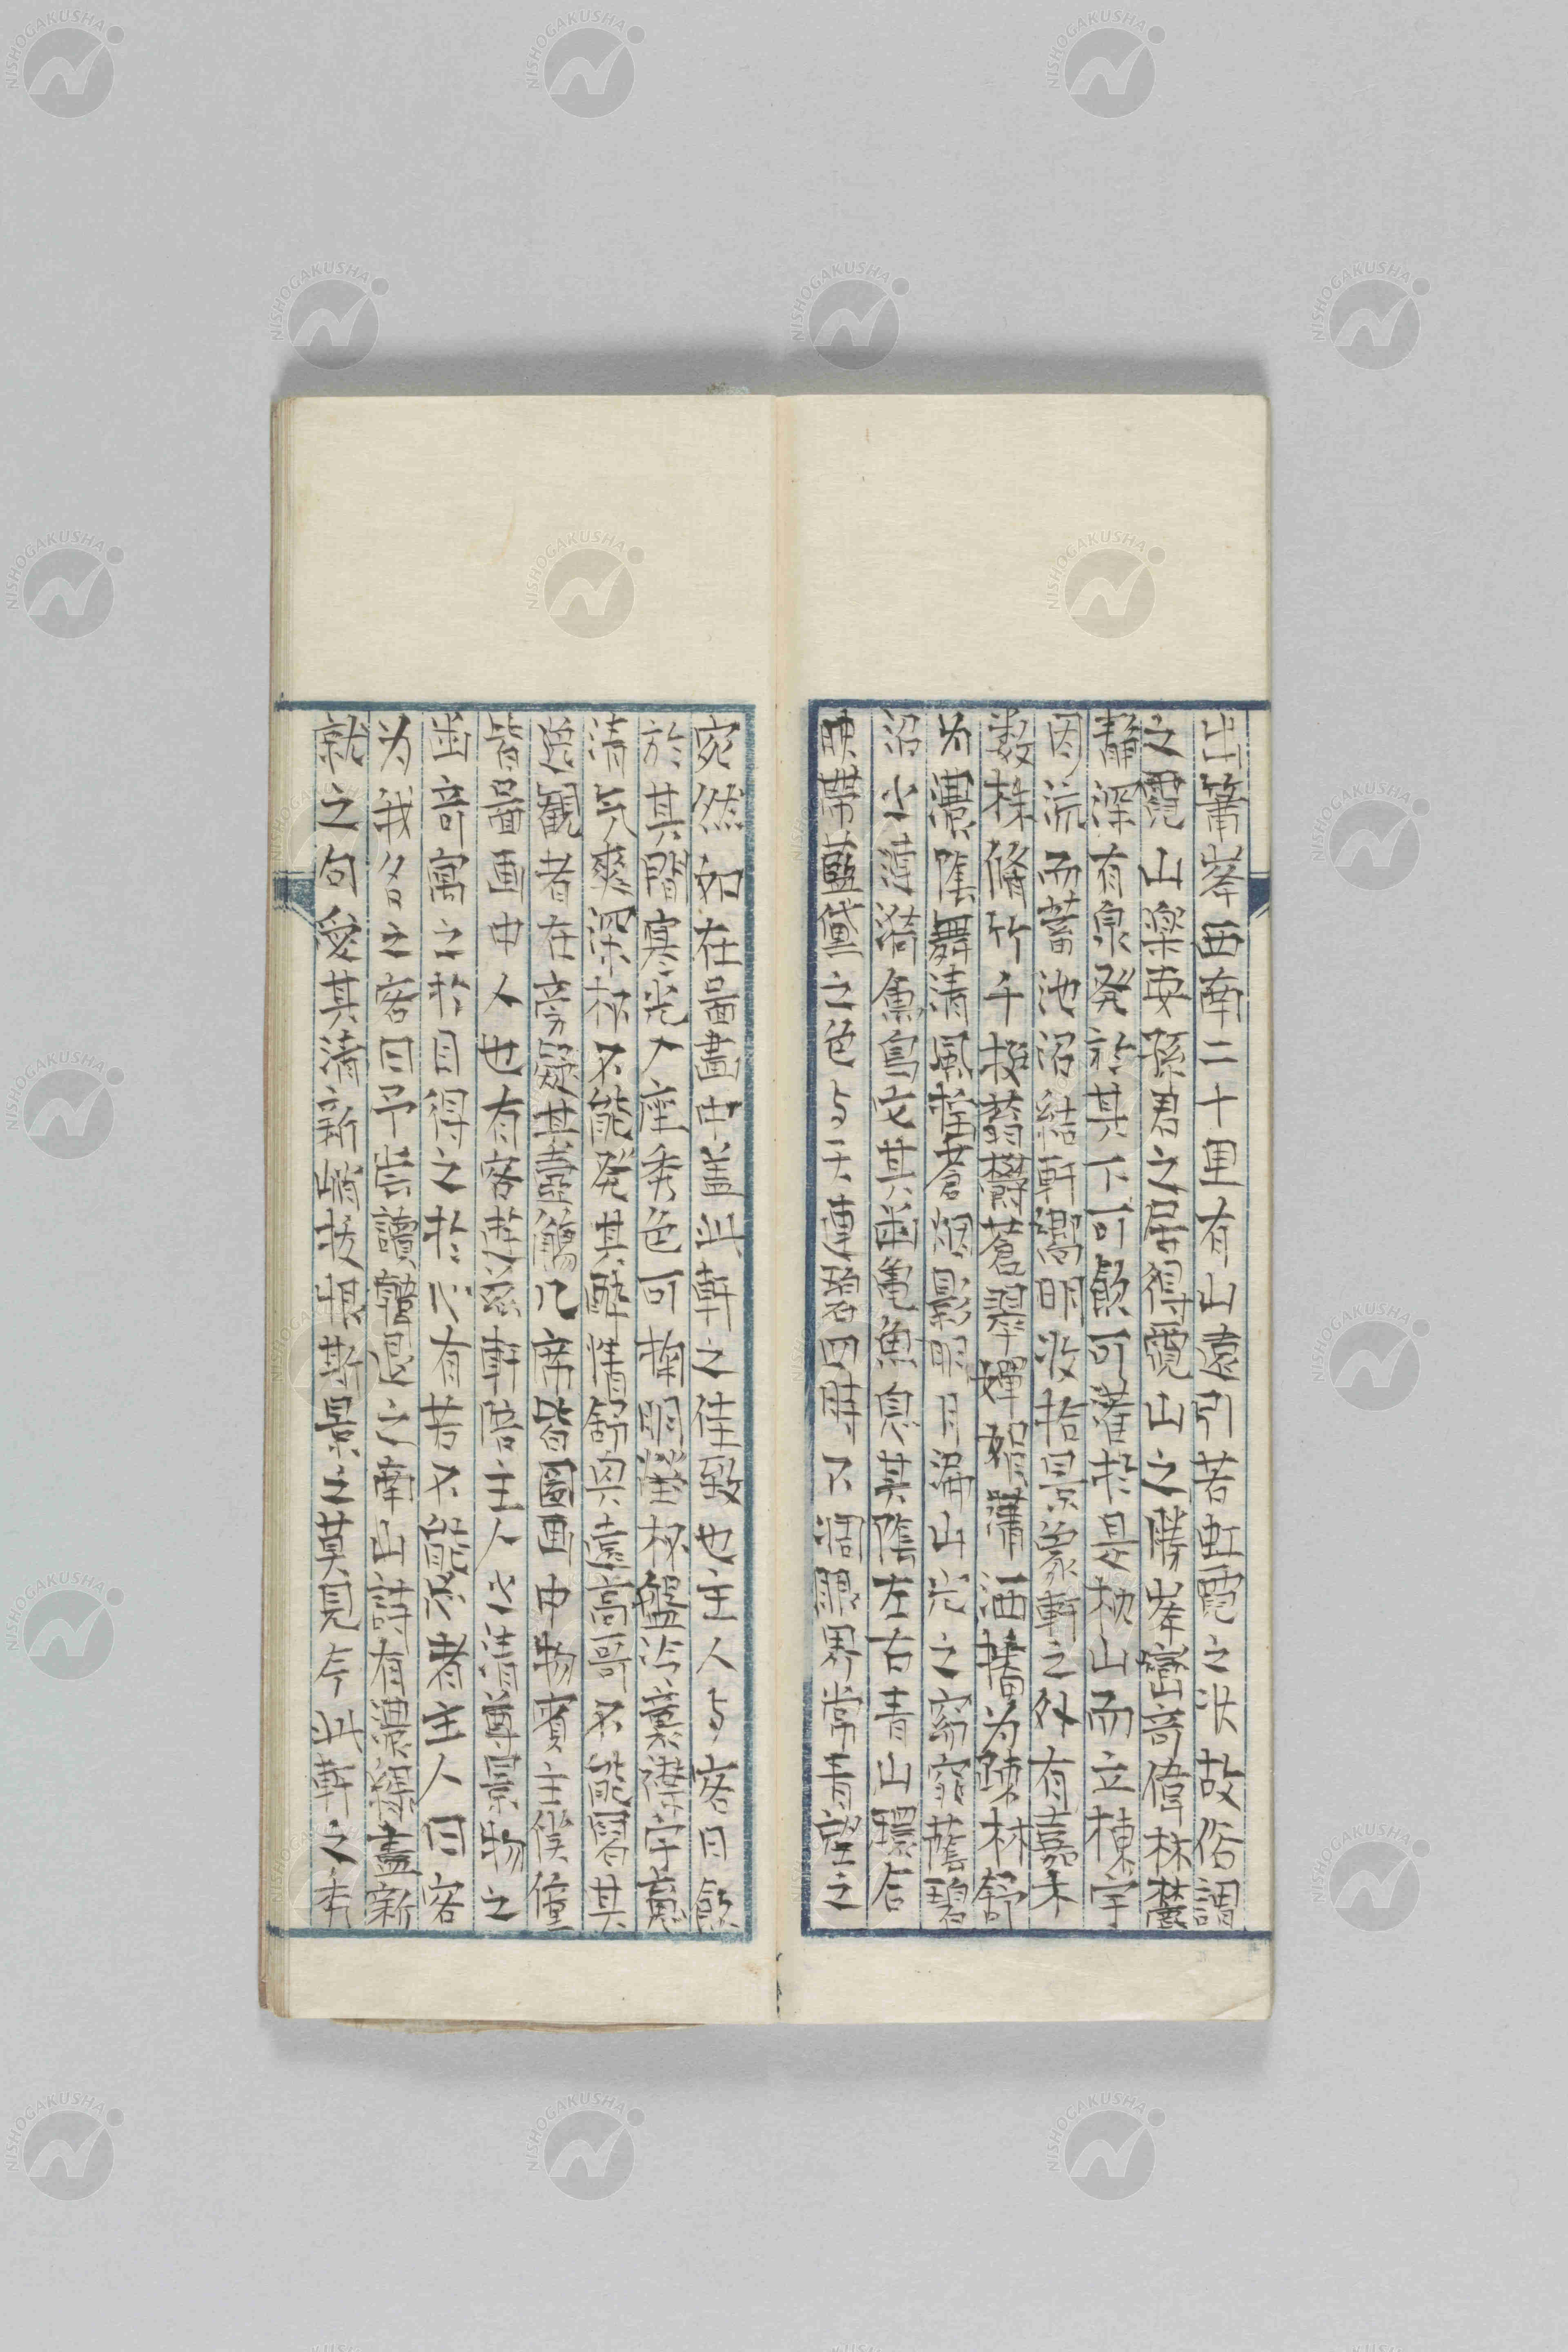 出篁峯西南二十里有山遠引若虹霓之狀故俗謂
之霓山樂安孫君之居得霓山之勝峯巒奇偉林麓
靜深有泉発於其下可飲可灌於是枕山而立棟宇
因流而蓄池沼結軒窗明收拾景象軒之外有嘉木
数株脩竹千挺蓊欝蒼翠嬋娟瀟洒播为踈林舒
为濃陰舞清風推蒼烟影明月漏山光之窈窕蘸碧
沼之漣漪魚鳥交其幽亀魚息其陰左右青山環合
映帶藍黛之色与天連碧四時不凋眼界常青望之
宛然如在啚畫中盖此軒之佳致也主人与客日飲
於其間寒光入座秀色可掬明瑩杯盤冷襲襟宇萬
清气爽深杯不能発其酔情舒奥遠高哥不能習其
逸觀者在旁疑其壺觴几席皆圖画中物賓主僕僮
皆啚画中人也有客遊茲軒陪主人之清尊景物之
幽奇寓之於目得之於心有若不能忘者主人曰客
为我名之客曰予甞讀韓退之南山詩有濃緑畫新
就之句愛其清新峭拔恨斯景之莫見今此軒之秀
NISHOGAKUSHA